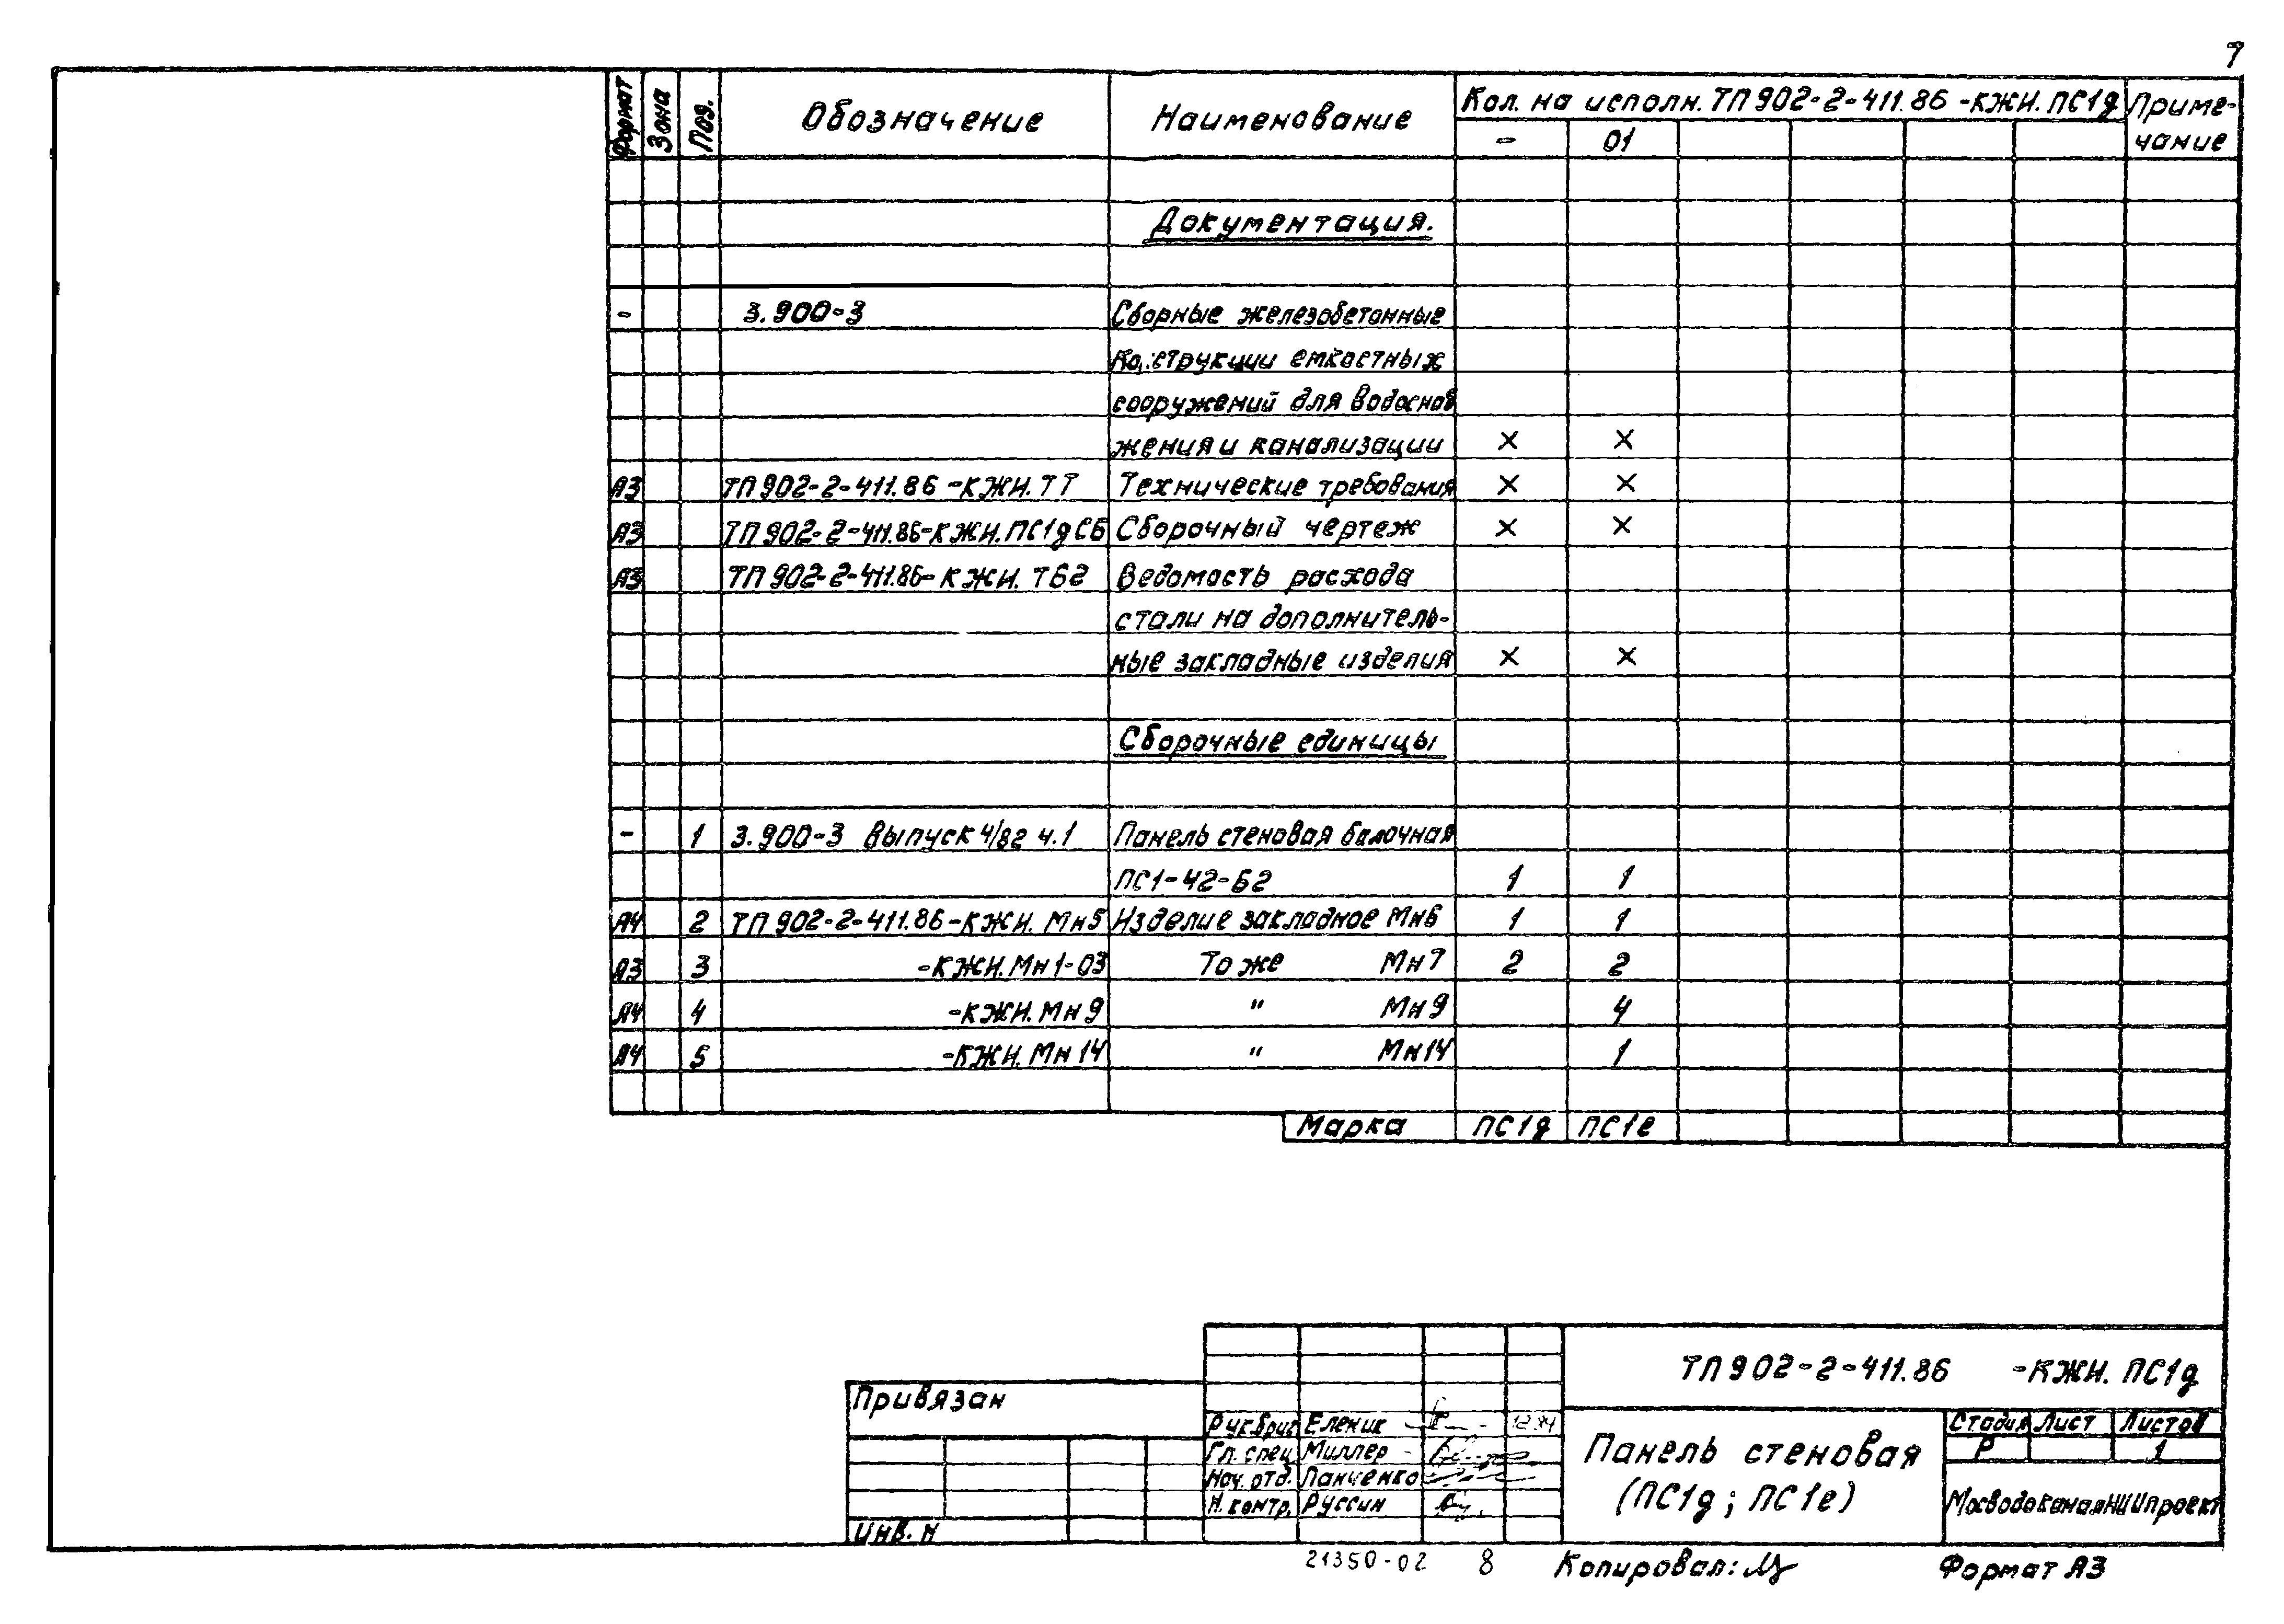 7
Формат Зона Поз. Обозначение Наименование Кол. на исполн. ТП 902-2-411.86 -КЖИ. ПС1д Приме-
- 01 чание
Документация.
- 3.900-3 Сборные железобетонные
конструкции емкостных
сооружений для водоснаб
жения и канализации × ×
А3 ТП 902-2-411.86 -КЖИ. ТТ Технические требования × ×
А3 ТП 902-2-411.86-КЖИ. ПС1д СБ Сборочный чертеж × ×
А3 ТП 902-2-411.86-КЖИ. ТБ2 Ведомость расхода
стали на дополнитель-
ные закладные изделия × ×
Сборочные единицы
- 1 3.900-3 Выпуск 4/82 ч.1 Панель стеновая балочная
ПС1-42-Б2 1 1
А4 2 ТП 902-2-411.86-КЖИ. Мн5 Изделие закладное Мн6 1 1
А3 3 -КЖИ. Мн1-03 То же Мн7 2 2
А4 4 -КЖИ. Мн9 " Мн9 4
А4 5 -КЖИ. Мн14 " Мн14 1
Марка ПС1д ПС1е
ТП 902-2-411.86 -КЖИ. ПС1д
Привязан
Рук.бриг Еленик 12.84
Гл. спец Миллер
Нач. отд. Панченко
Н. контр. Руссин
Инв. N
Панель стеновая
(ПС1д; ПС1е)
Стадия Лист Листов
Р 1
МосводоканалНИИпроект
21350-02 8 Копировал: Формат А3